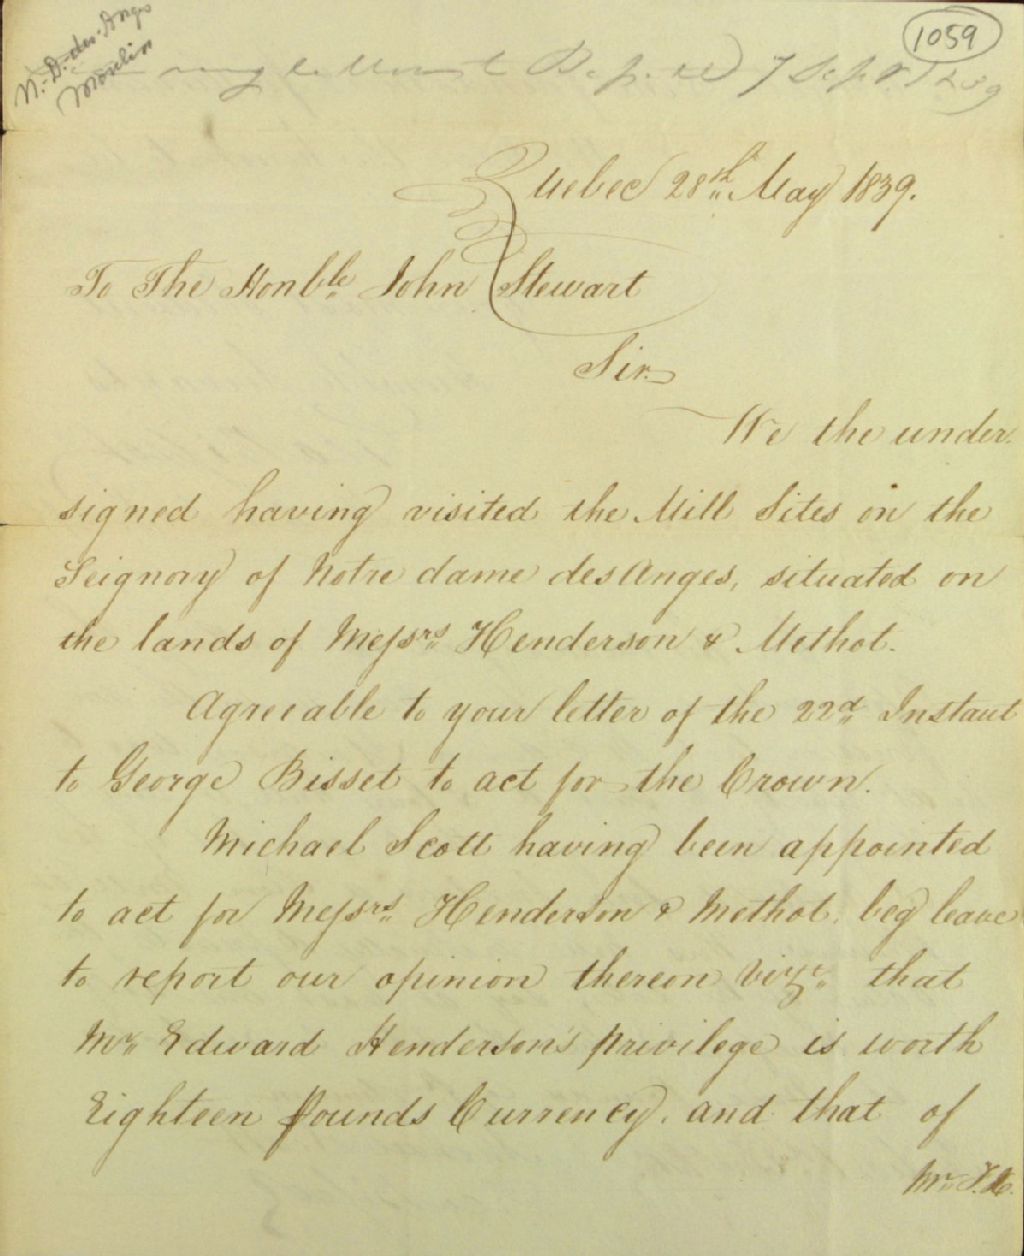 N. D. des Anges
Moulin
1059
7 Sept. 1839
Quebec 28th May 1839.
To The Honble John Stewart
Sir.
We the under
signed having visited the Mill Sites on the
Seignory of Notre dame desAnges, situated on
the lands of Messrs Henderson & Methot.
Agreeable to your letter of the 22d Instant
to George Bisset to act for the Crown.
Michael Scott having been appointed
to act for Messrs Henderson & Methot. beg leave
to report our opinion thereon vizt. that
Mr. Edward Henderson's privilege is worth
Eighteen Pounds Currency. and that of
Mr.